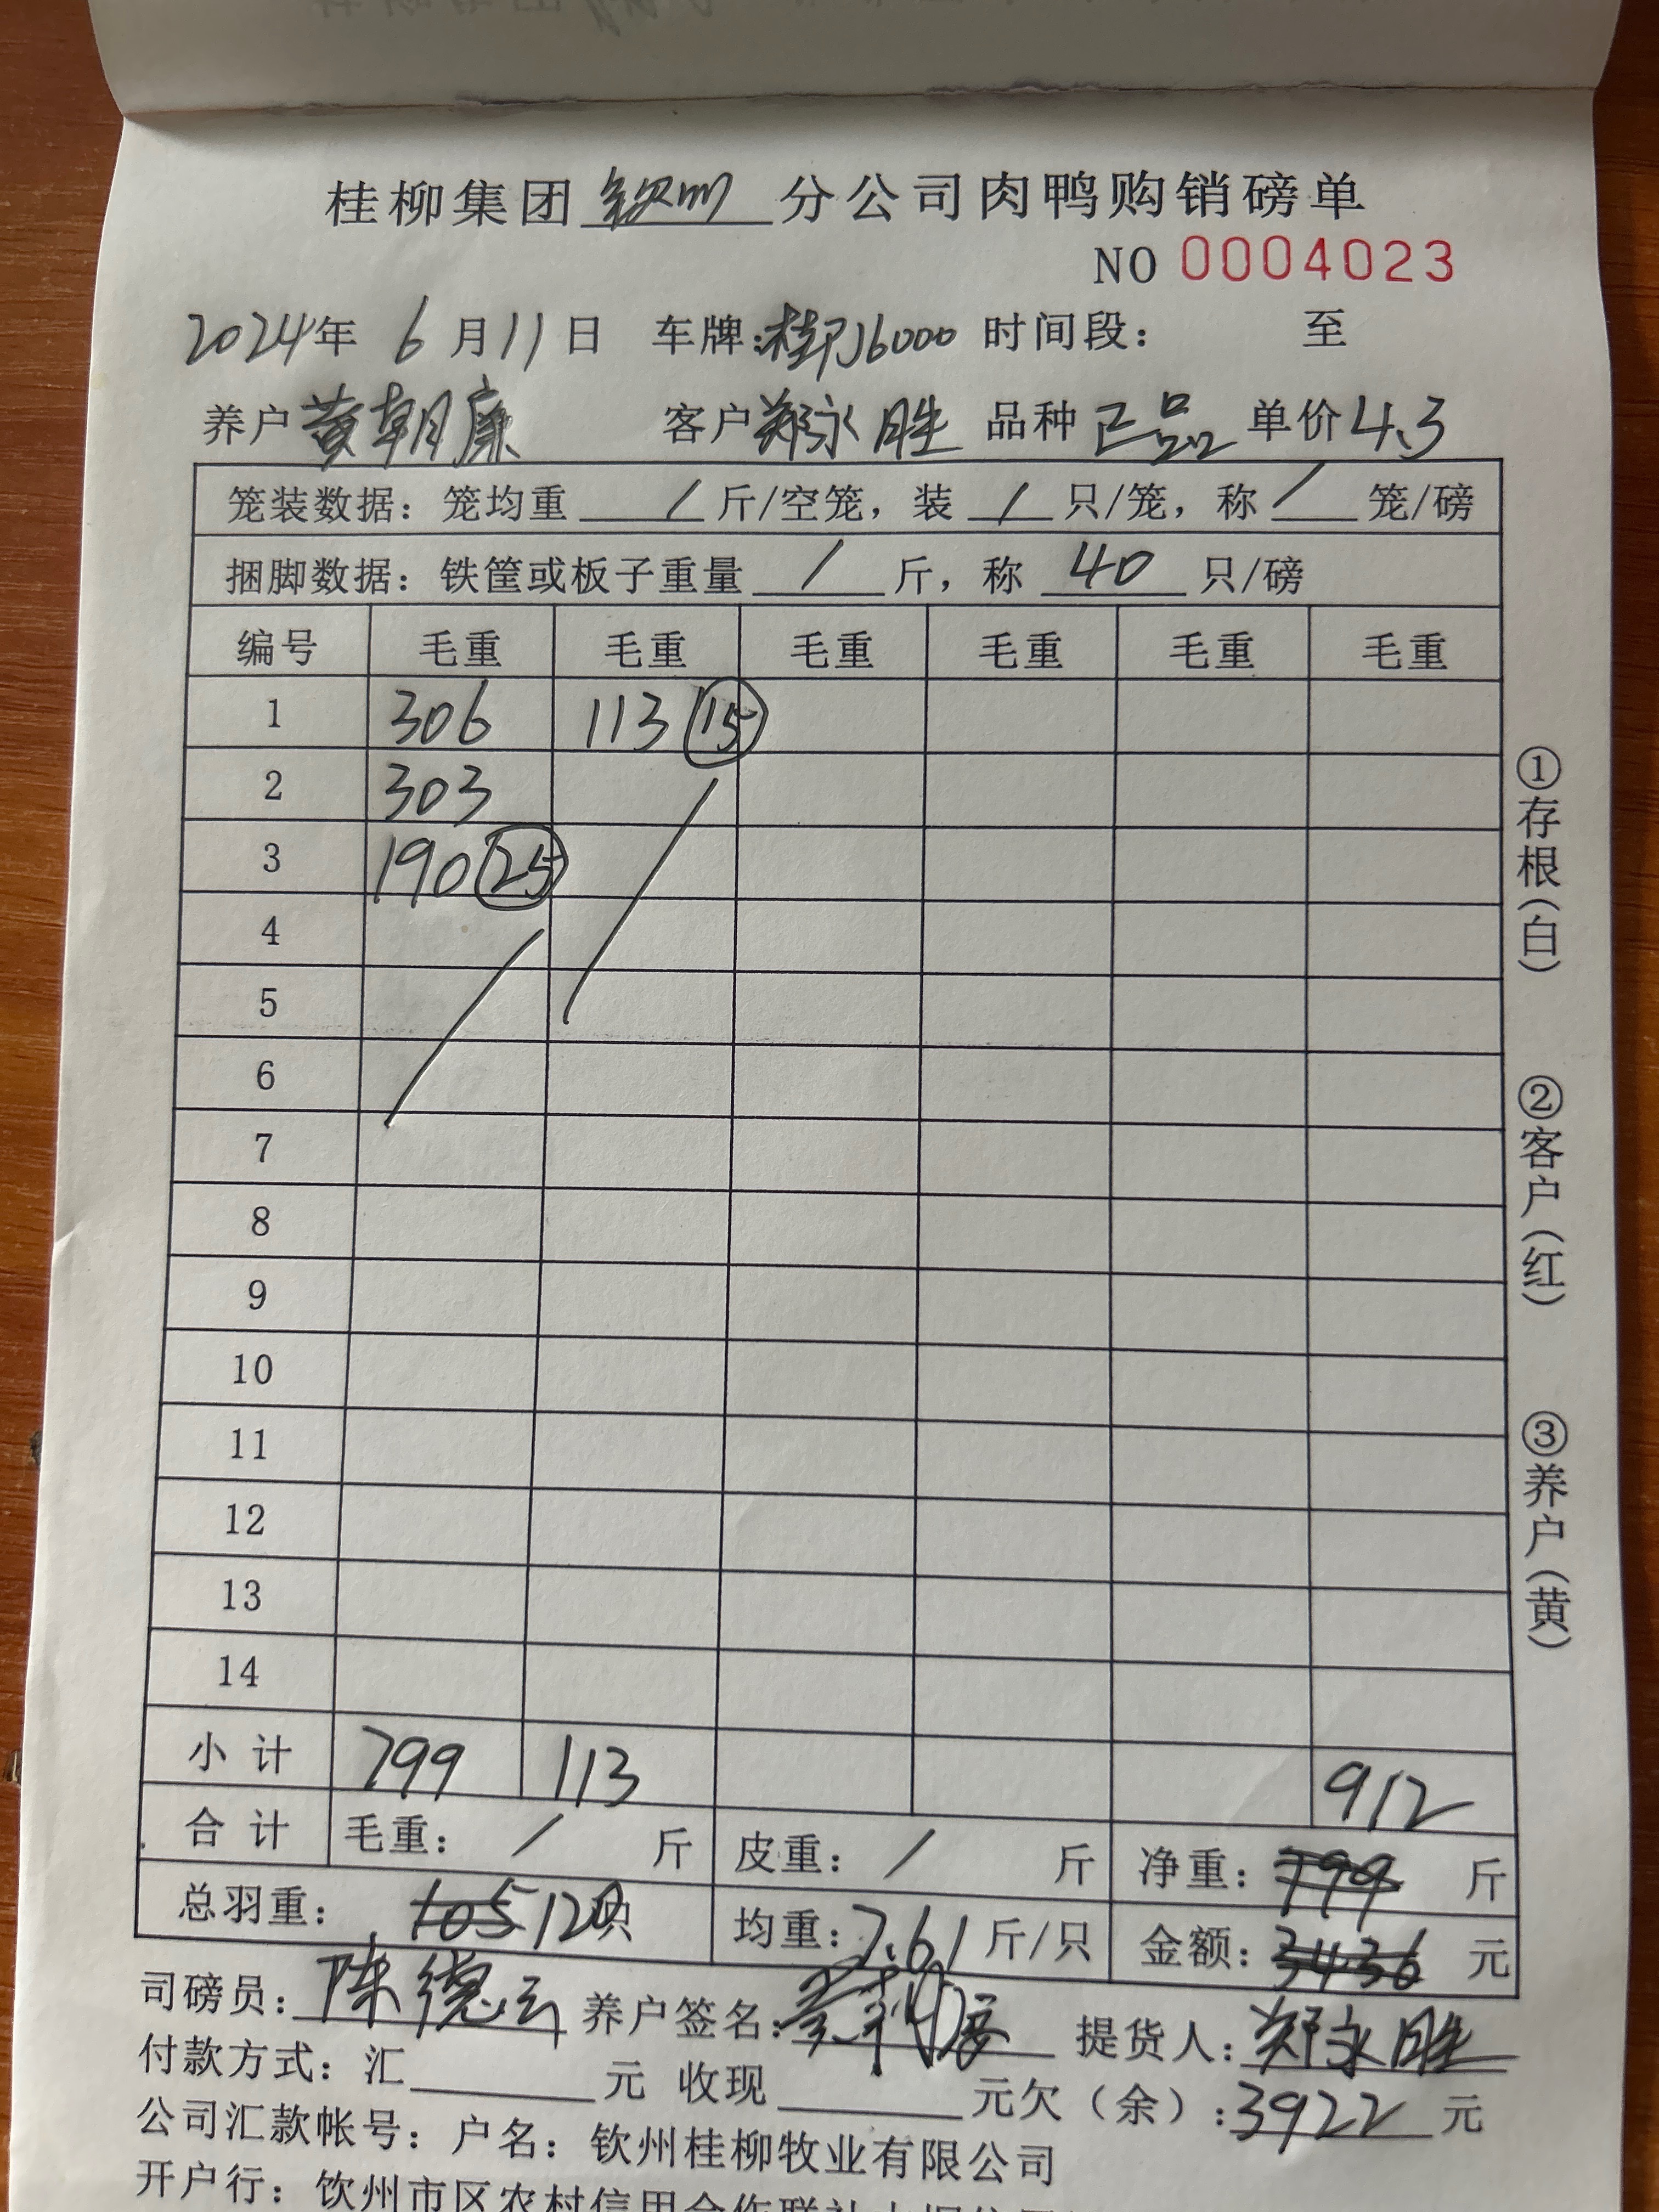 桂柳集团 钦州 分公司肉鸭购销磅单
NO 0004023
2024年 6月11日 车牌:桂 J6000 时间段: 至
养户 黄朝廉 客户 郑永胜 品种 正品 单价 4.3
笼装数据:笼均重 / 斤/空笼,装 / 只/笼,称 / 笼/磅
捆脚数据:铁筐或板子重量 / 斤,称 40 只/磅
编号 毛重 毛重 毛重 毛重 毛重 毛重
1 306 113 (15)
2 303
3 190 (25)
4
5
6
7
8
9
10
11
12
13
14
小计 799 113 912
合计 毛重: / 斤 皮重: / 斤 净重: 799 斤
总羽重: 105 120只 均重: 7.61 斤/只 金额: 3436 元
司磅员:陈德云 养户签名: 提货人:郑永胜
付款方式:汇 元 收现 元欠(余):3922 元
公司汇款帐号:户名:钦州桂柳牧业有限公司
开户行:钦州市区农村信用合作联社
①存根(白) ②客户(红) ③养户(黄)